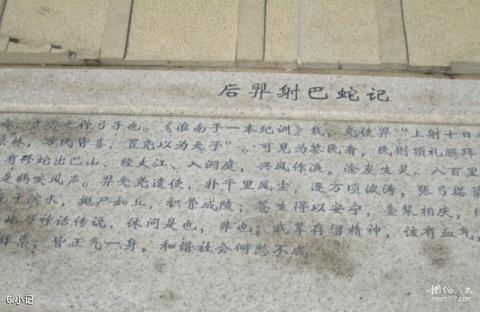 后羿射巴蛇记
方之神弓手也。《淮南子一本纪训》载，尧使羿“上射十日
桑林，万民皆喜，置尧以为天子”。可见为黎民者，民则顶礼膜拜
有修蛇出巴山、经大江、入洞庭，兴风作浪，涂炭生灵，八百里
是鹤唳风声。羿受尧遣使，扑千里风尘，逐万顷波涛，张弓搭箭
于 水，抛尸如丘，积骨成陵；苍生得以安宁，壶浆相庆，
此 神话传说，休问是也，非也；我辈存留精神，该有血气，
作祟；皆正气一身，和谐社会何愁不成
6.小记